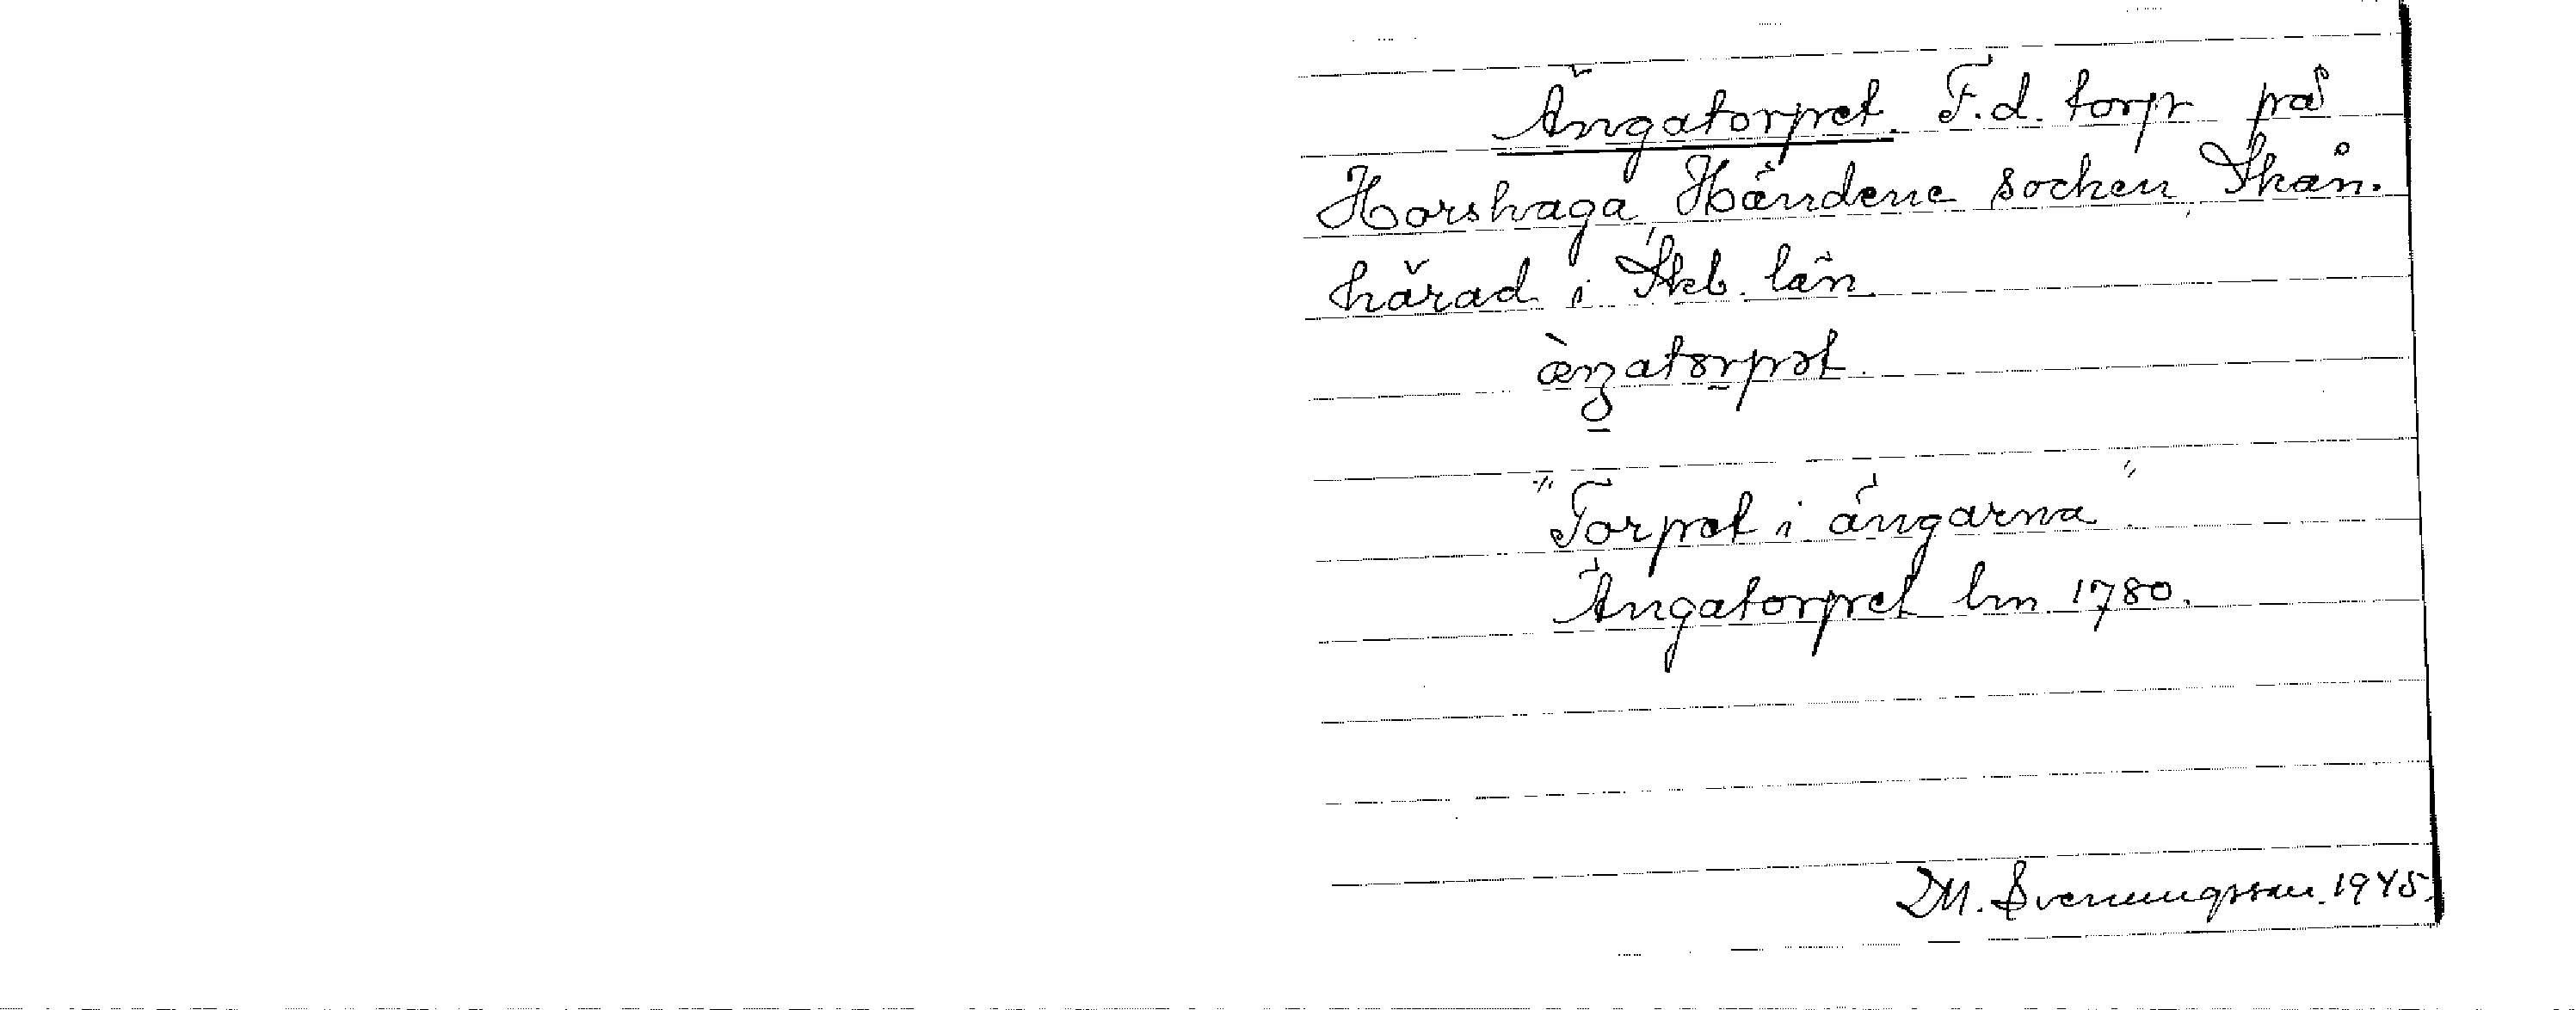 Ängatorpet. F.d. torp på
Horshaga, Händene socken, Skån.
härad i Skb. län.
æ̀ŋatorpət.
"Torpet i ängarna".
Ängatorpet lm 1780.
D.M. Svenungsson. 1945.